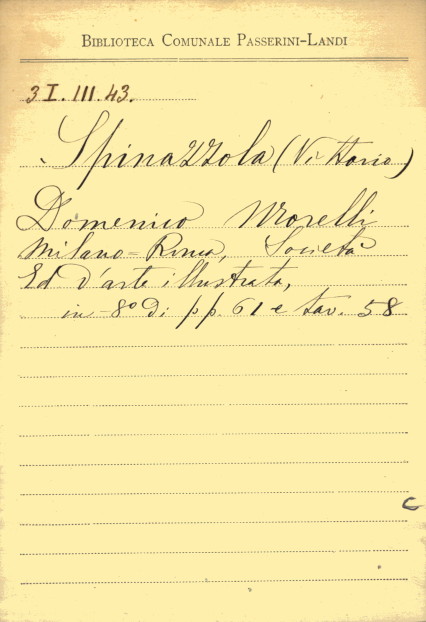 BIBLIOTECA COMUNALE PASSERINI-LANDI
3 I. III. 43.
Spinazzola (Vittorio)
Domenico Morelli
Milano=Roma, Società
Ed. d'arte illustrata,
in-8° di pp. 61 e tav. 58